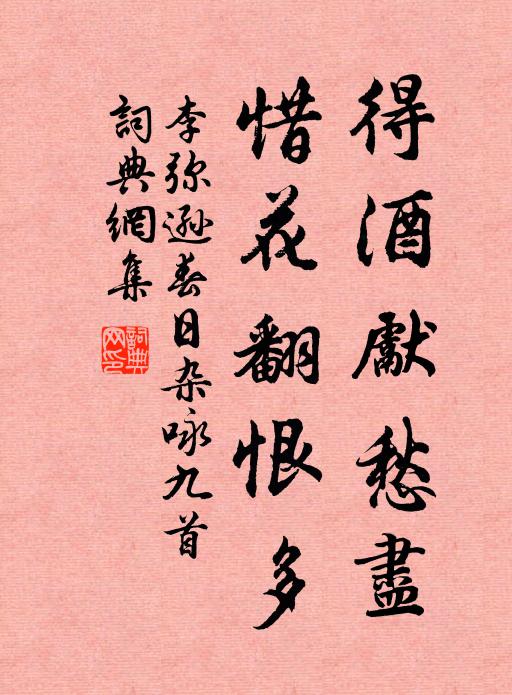 得酒獻愁盡
惜花翻恨多
李弥遜春日杂咏九首
詞典網集
詞典网印